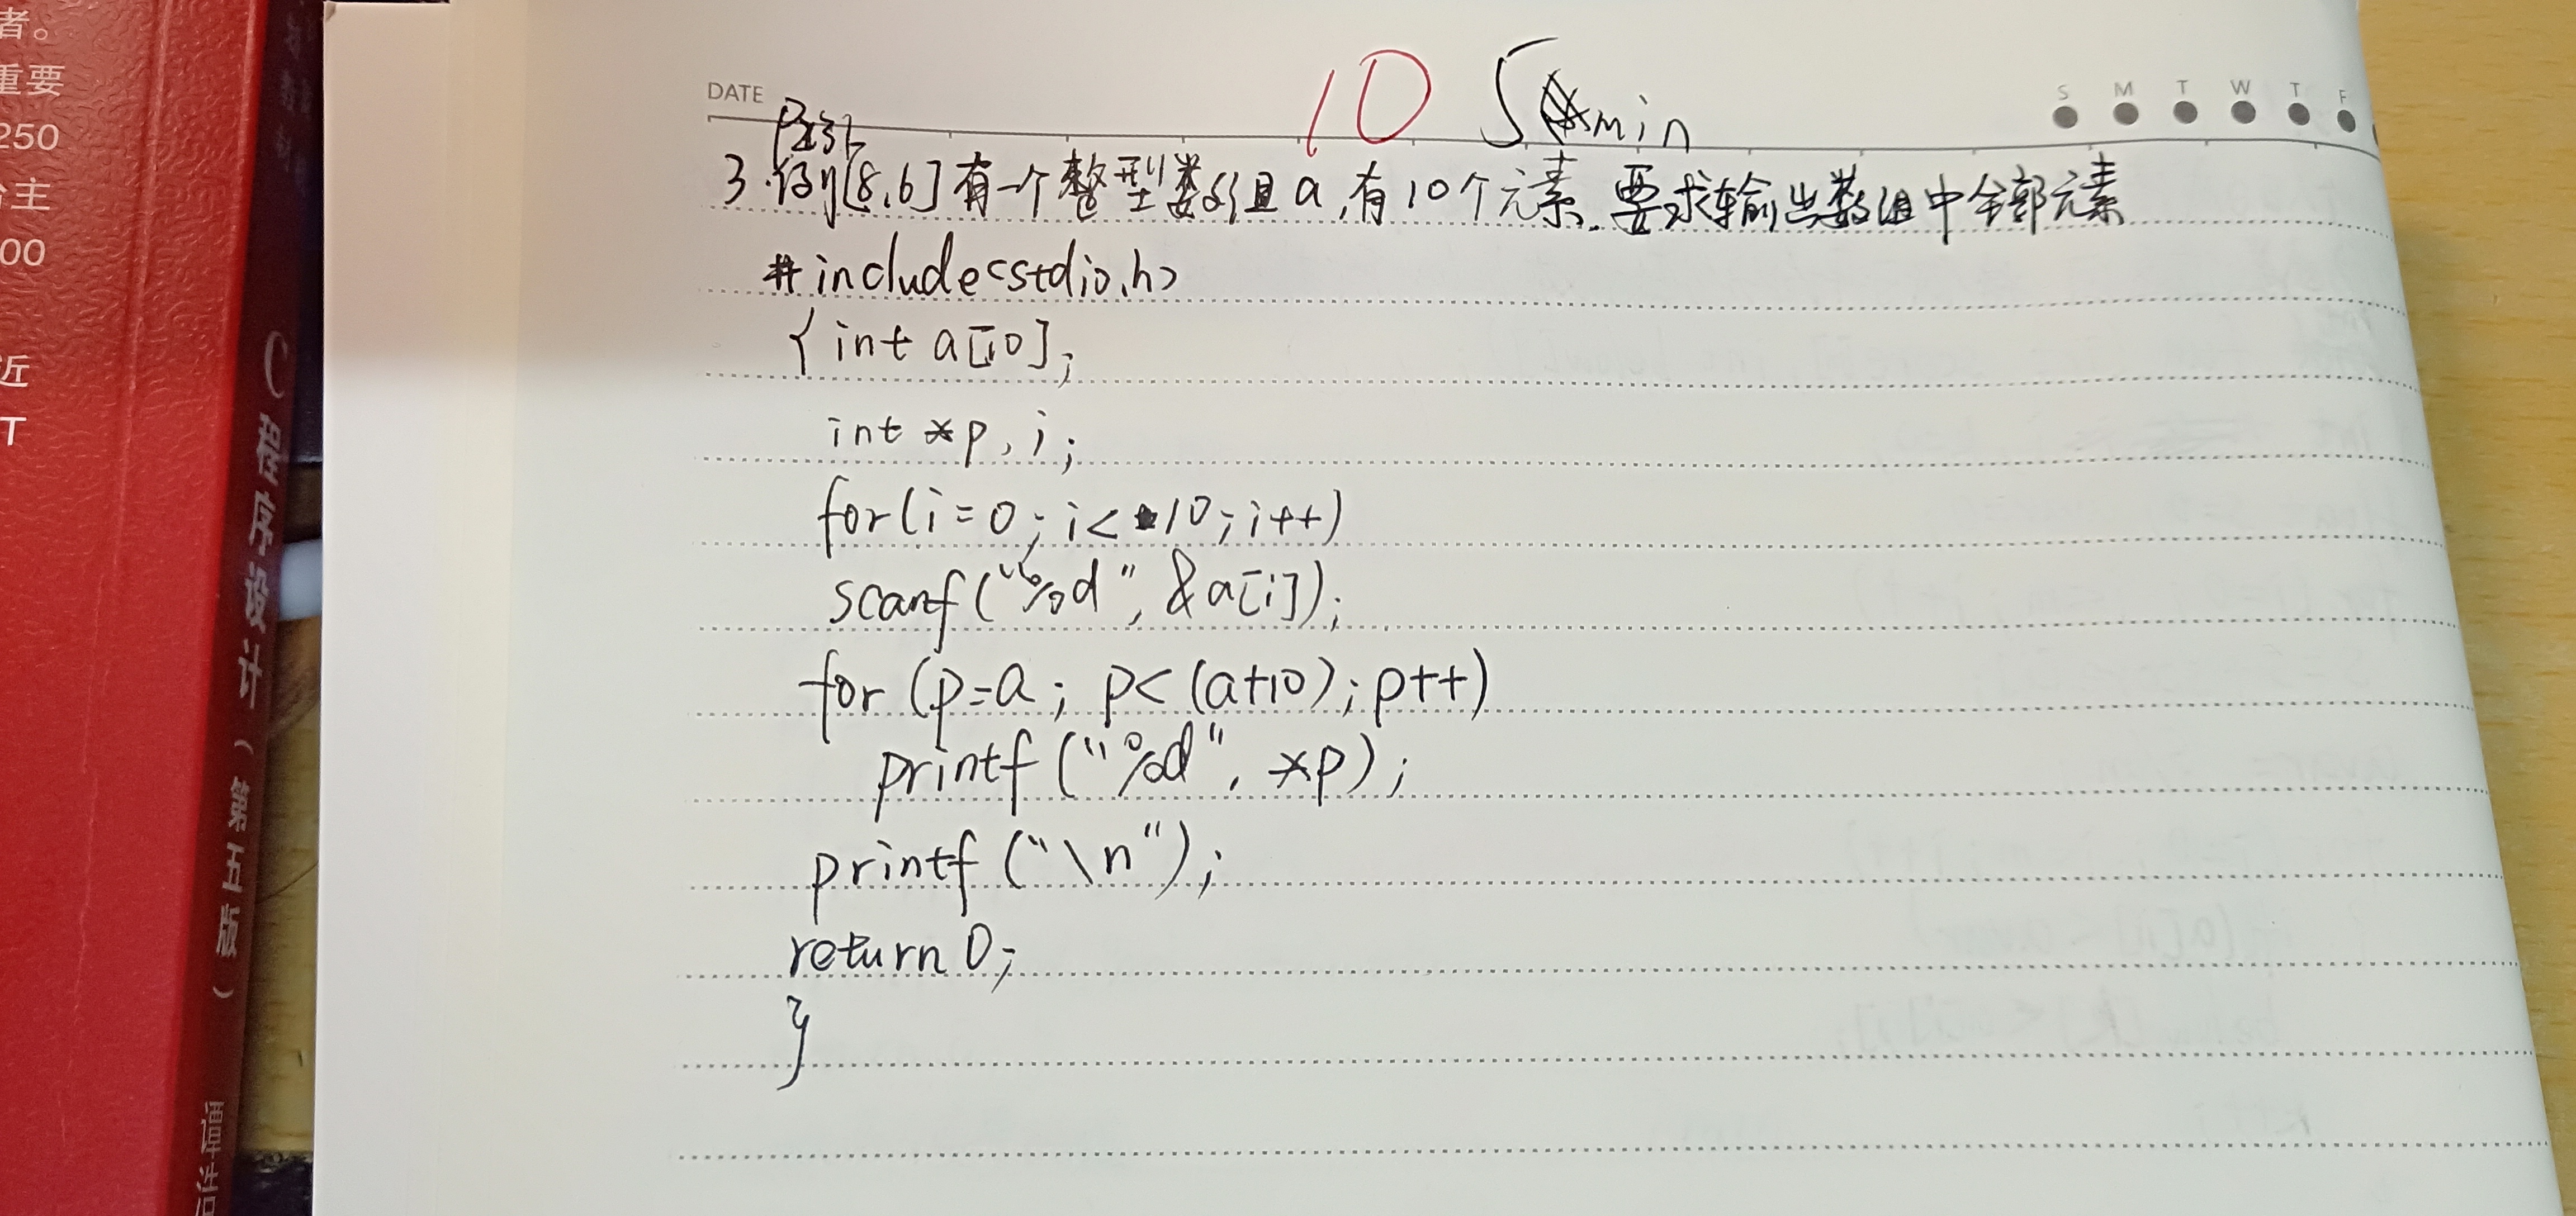 者。
重要
250
主
00
近
T
C程序设计（第五版）
谭浩
DATE
10 5 min
S M T W T F
P231
3.例[8.6]有一个整型数组a,有10个元素.要求输出数组中全部元素
#include<stdio.h>
{int a[10];
int *p,i;
for(i=0;i<10;i++)
scanf("%d",&a[i]);
for(p=a;p<(a+10);p++)
printf("%d",*p);
printf("\n");
return 0;
}